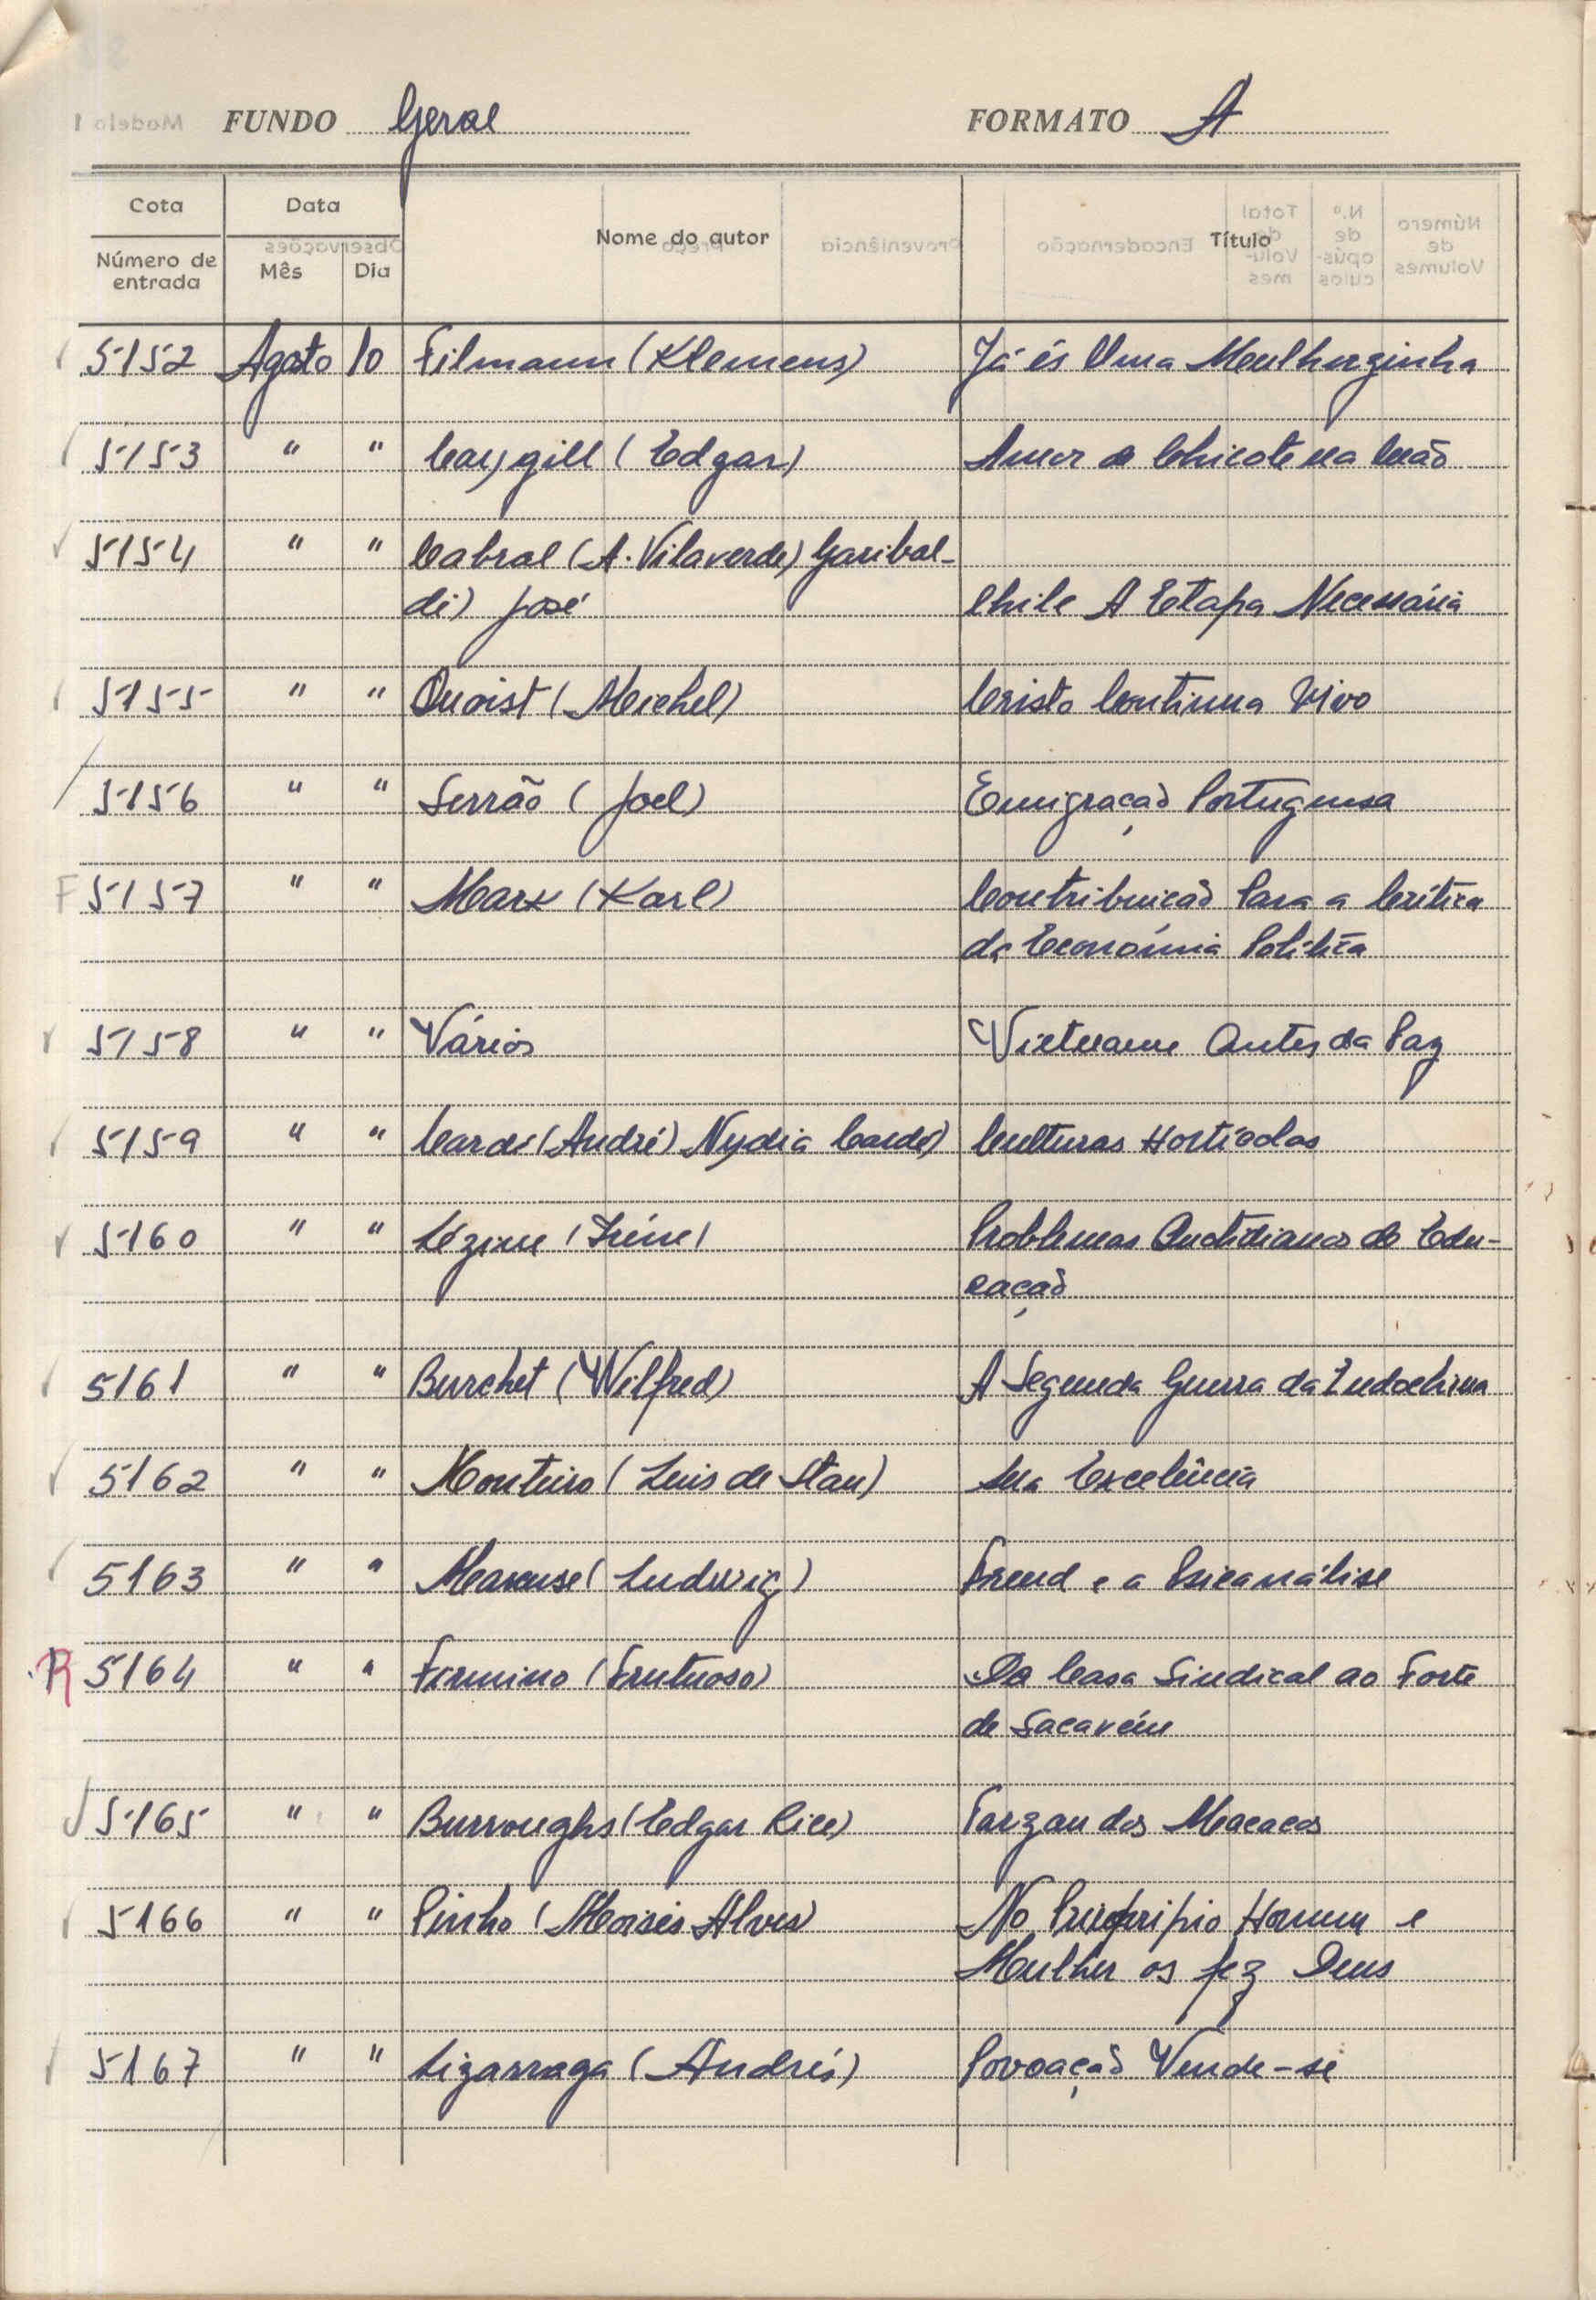 FUNDO Geral FORMATO A
Cota Data Nome do autor Título
Número de entrada Mês Dia
5152 Agosto 10 Filmann (Klemens) Já és Uma Mulherzinha
5153 " " Caygill (Edgar) Amor de Chicote na Mão
5154 " " Cabral (A. Vilaverde) Garibal-
di) José Chile A Etapa Necessária
5155 " " Quoist (Michel) Cristo Continua Vivo
5156 " " Serrão (Joel) Emigração Portuguesa
F 5157 " " Marx (Karl) Contribuicão Para a Crítica
da Económia Política
5158 " " Vários Vietname Antes da Paz
5159 " " Carde (André) Nydia Carde) Culturas Hortícolas
5160 " " Lézine (Iréne) Problemas Quotidianos de Edu-
cação
5161 " " Burchet (Wilfred) A Segunda Guerra da Indochina
5162 " " Monteiro (Luis de Stau) Sua Excelência
5163 " " Marcuse (Ludwig) Freud e a Psicanálise
R 5164 " " Firmino (Frutuoso) Da Casa Sindical ao Forte
de Sacavém
5165 " " Burroughs (Edgar Rice) Tarzan dos Macacos
5166 " " Pinho (Moisés Alves) No Homem e
Mulher os fez Deus
5167 " " Lizarraga (Andrés) Povoação Vende-se